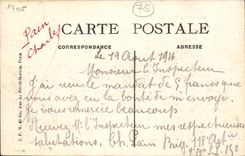 1905
75
Pain
Charles
CARTE POSTALE
CORRESPONDANCE
ADRESSE
le 19 Août 1916
Monsieur l'Inspecteur
J'ai reçu le mandat de 5 francs que
vous avez eu la bonté de m'envoyer.
Je vous remercie beaucoup
Recevez Mr l'Inspecteur mes respectueuses
salutations. Ch. Pain Brig. 118e